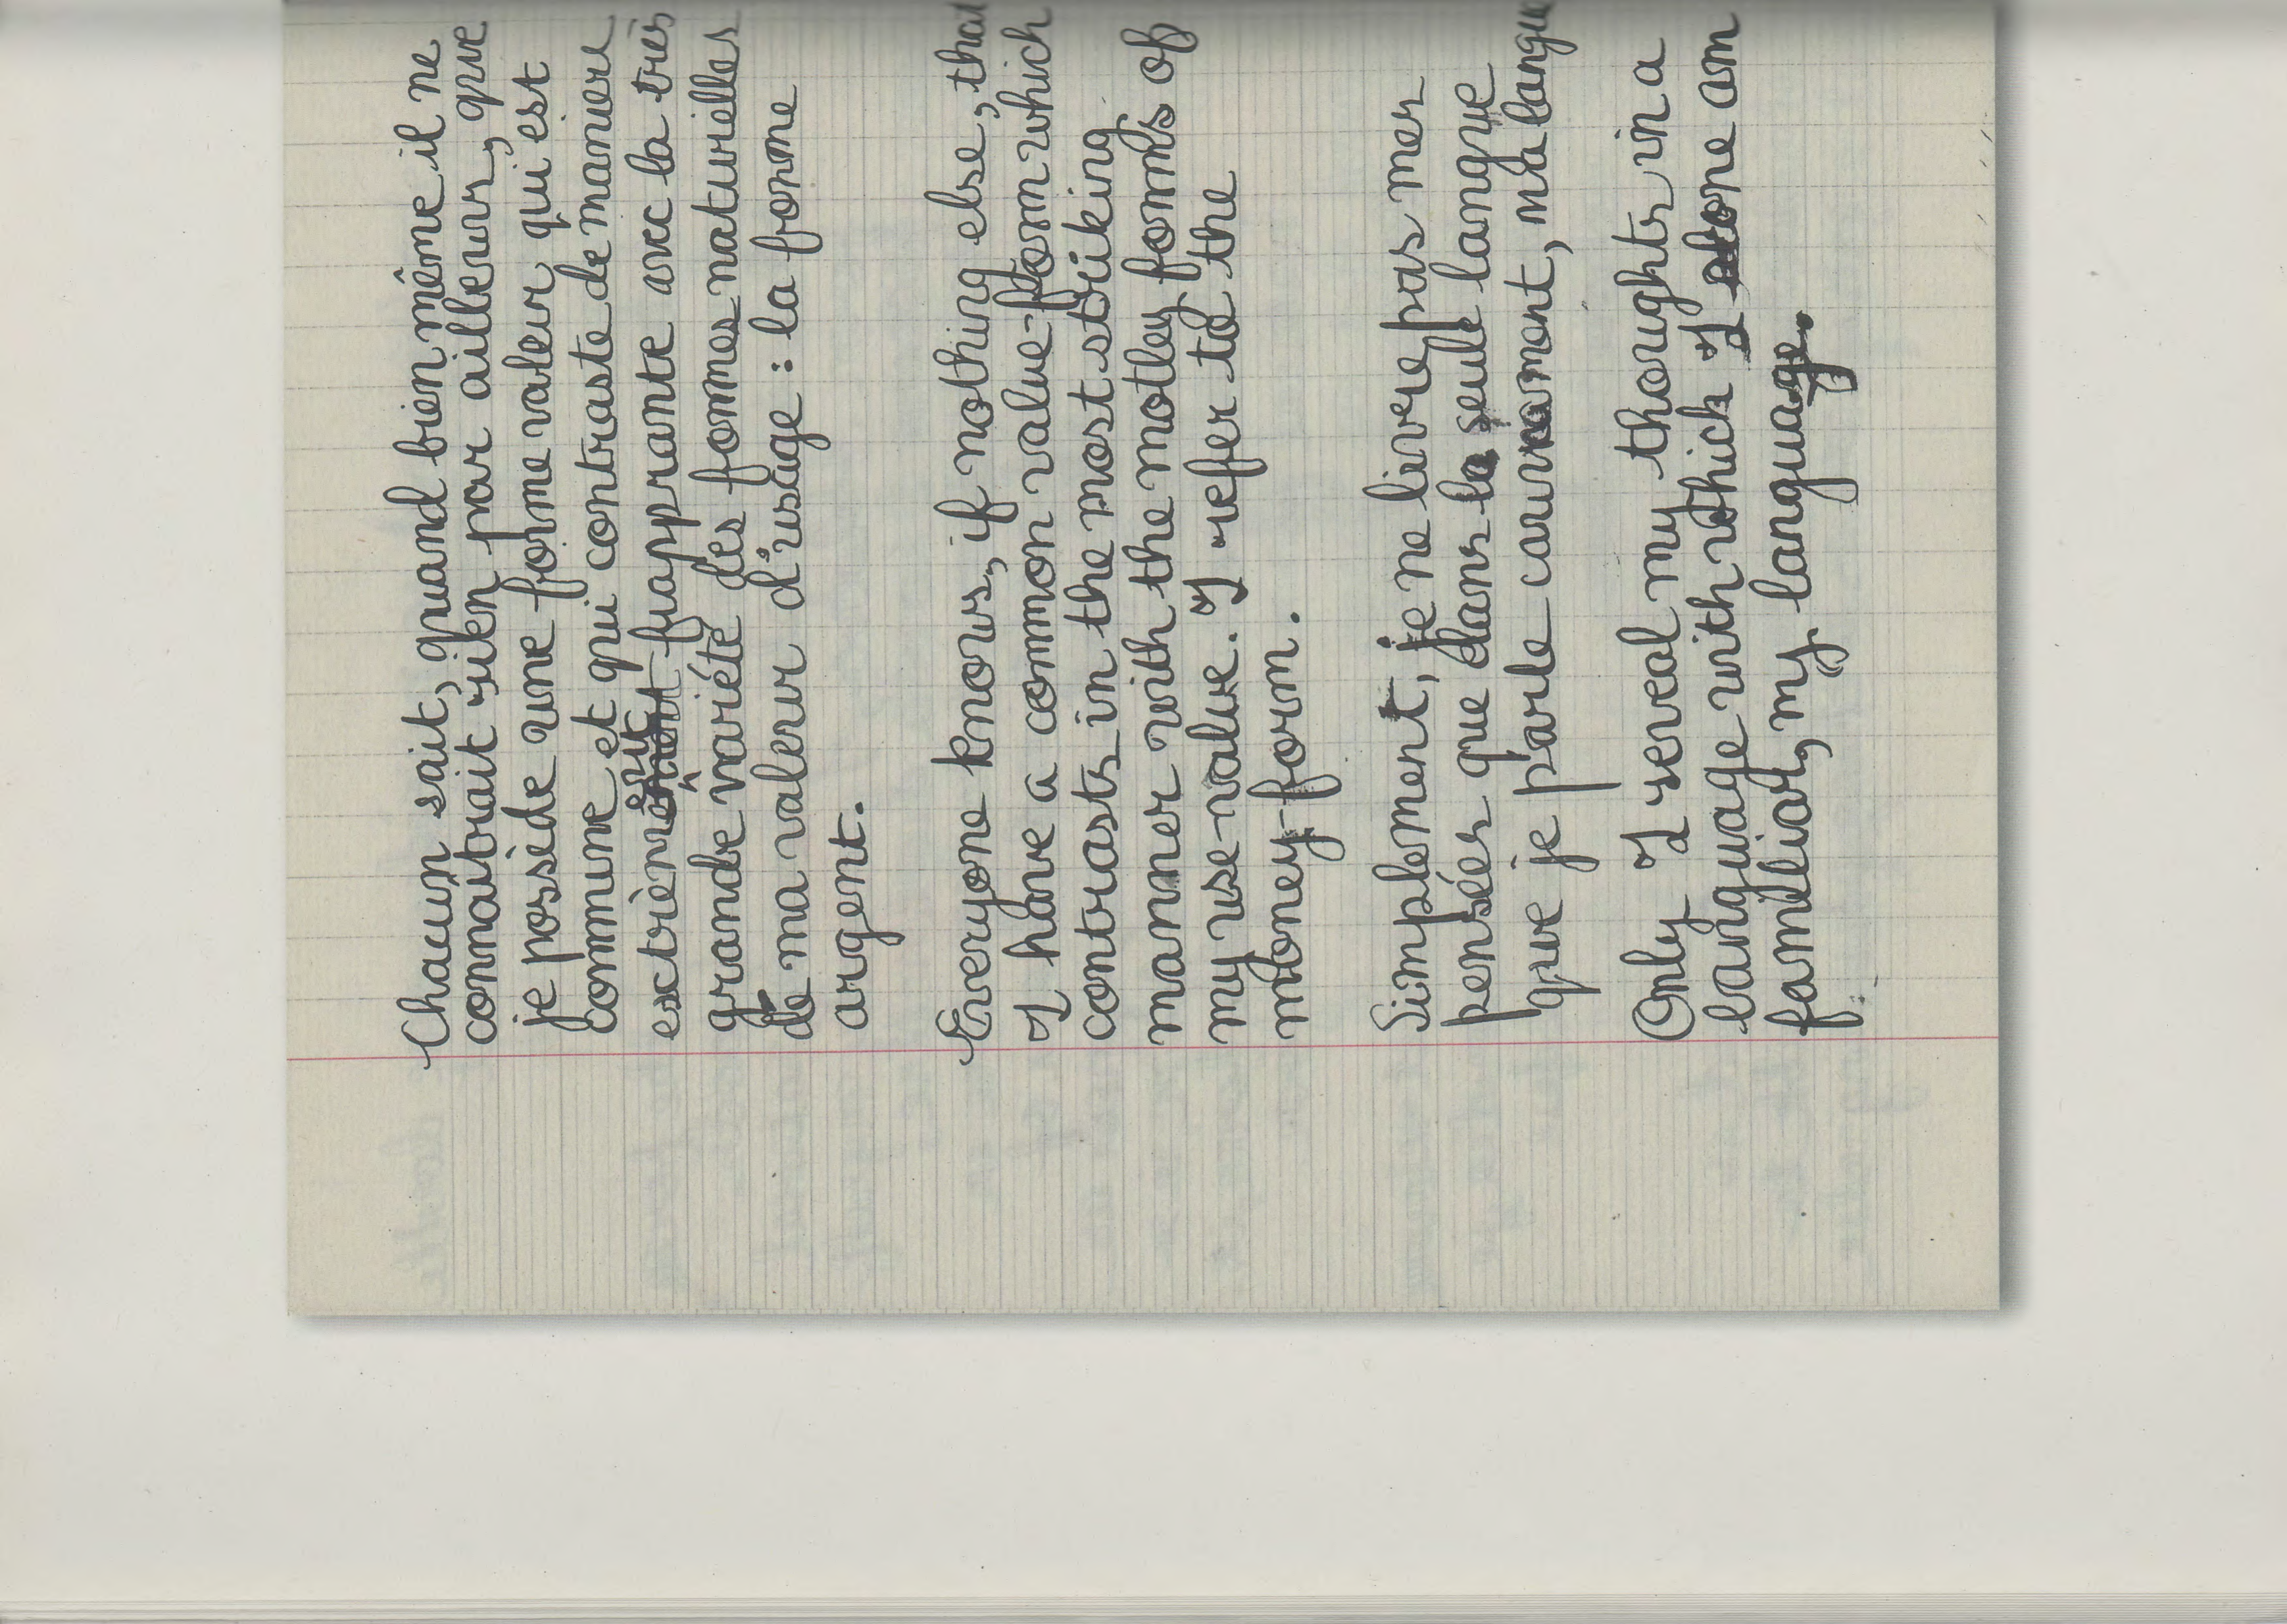 Chacun sait, quand bien même il ne
connaîtrait rien par ailleurs, que
je possède une forme valeur qui est
commune et qui contraste de manière
extrêmement frappante avec la très
grande variété des formes naturelles
de ma valeur d'usage : la forme
argent.
Everyone knows, if nothing else, that
I have a common value-form which
contrasts in the most striking
manner with the motley forms of
my use-value. I refer to the
money-form.
Simplement, je ne livre pas mes
pensées que dans la seule langue
que je parle couramment, ma langue
Only I reveal my thoughts in a
language with which I alone am
familiar, my language.